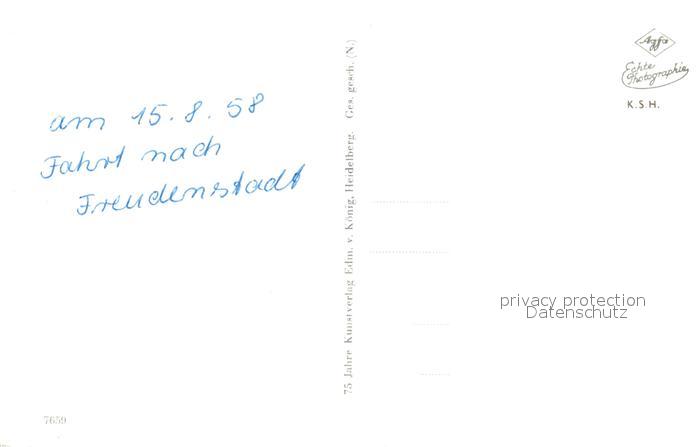 am 15.8.58
Fahrt nach
Freudenstadt
75 Jahre Kunstverlag Edm. v. König, Heidelberg. Ges. gesch. (N.)
Agfa
Echte
Photographie
K.S.H.
privacy protection
Datenschutz
7659